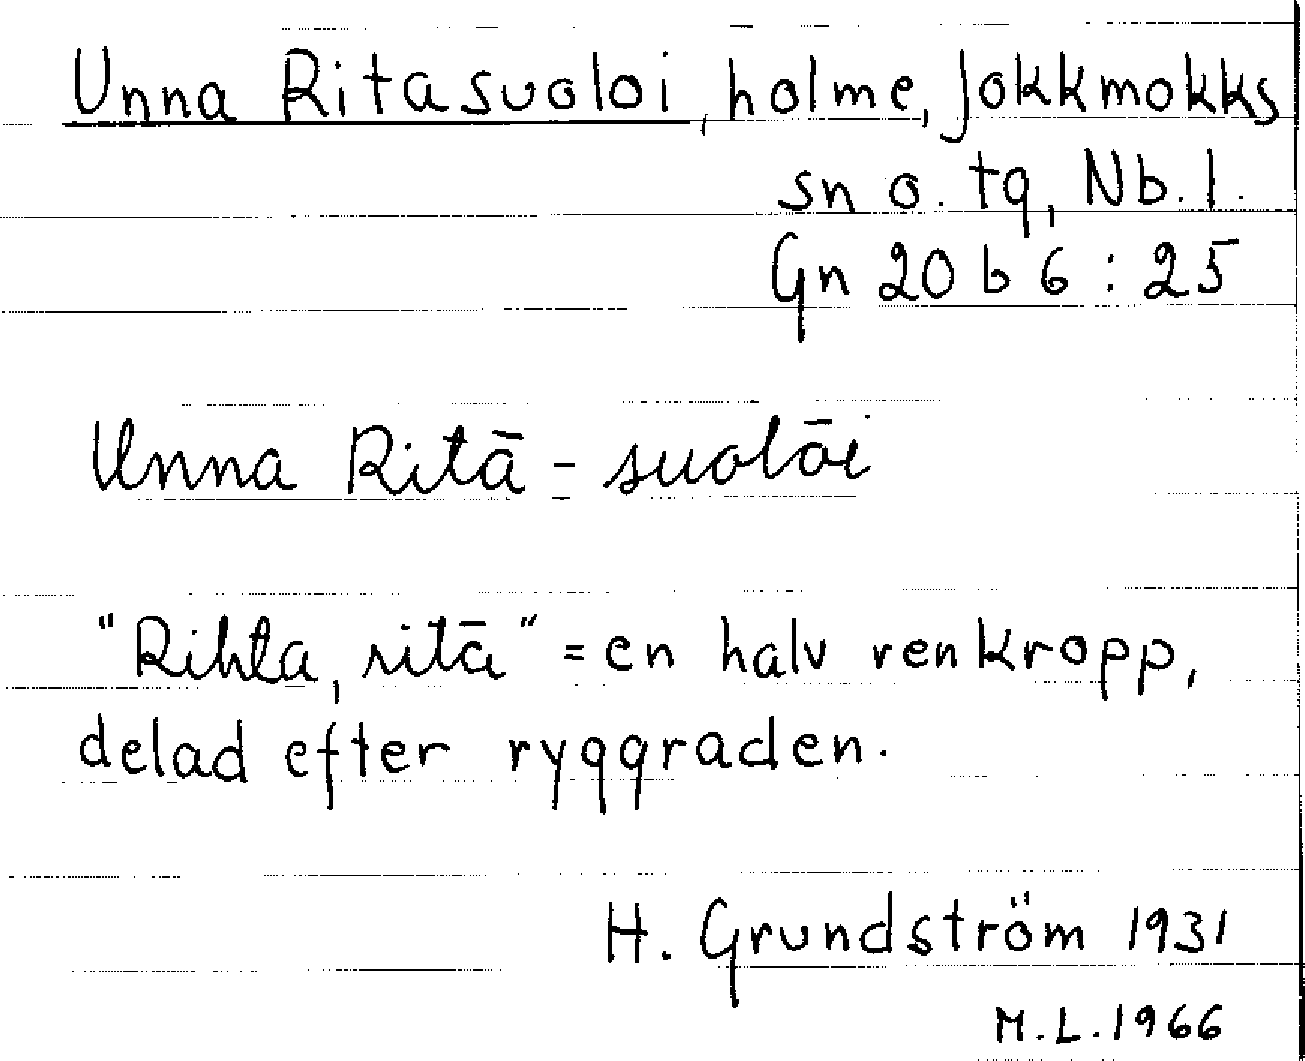 Unna Ritasuoloi, holme, Jokkmokks
sn o. tg, Nb. l.
Gn 20 b 6 : 25
Unna Ritā - suolāi
"Rihta, ritā" = en halv renkropp,
delad efter ryggraden.
H. Grundström 1931
M.L. 1966